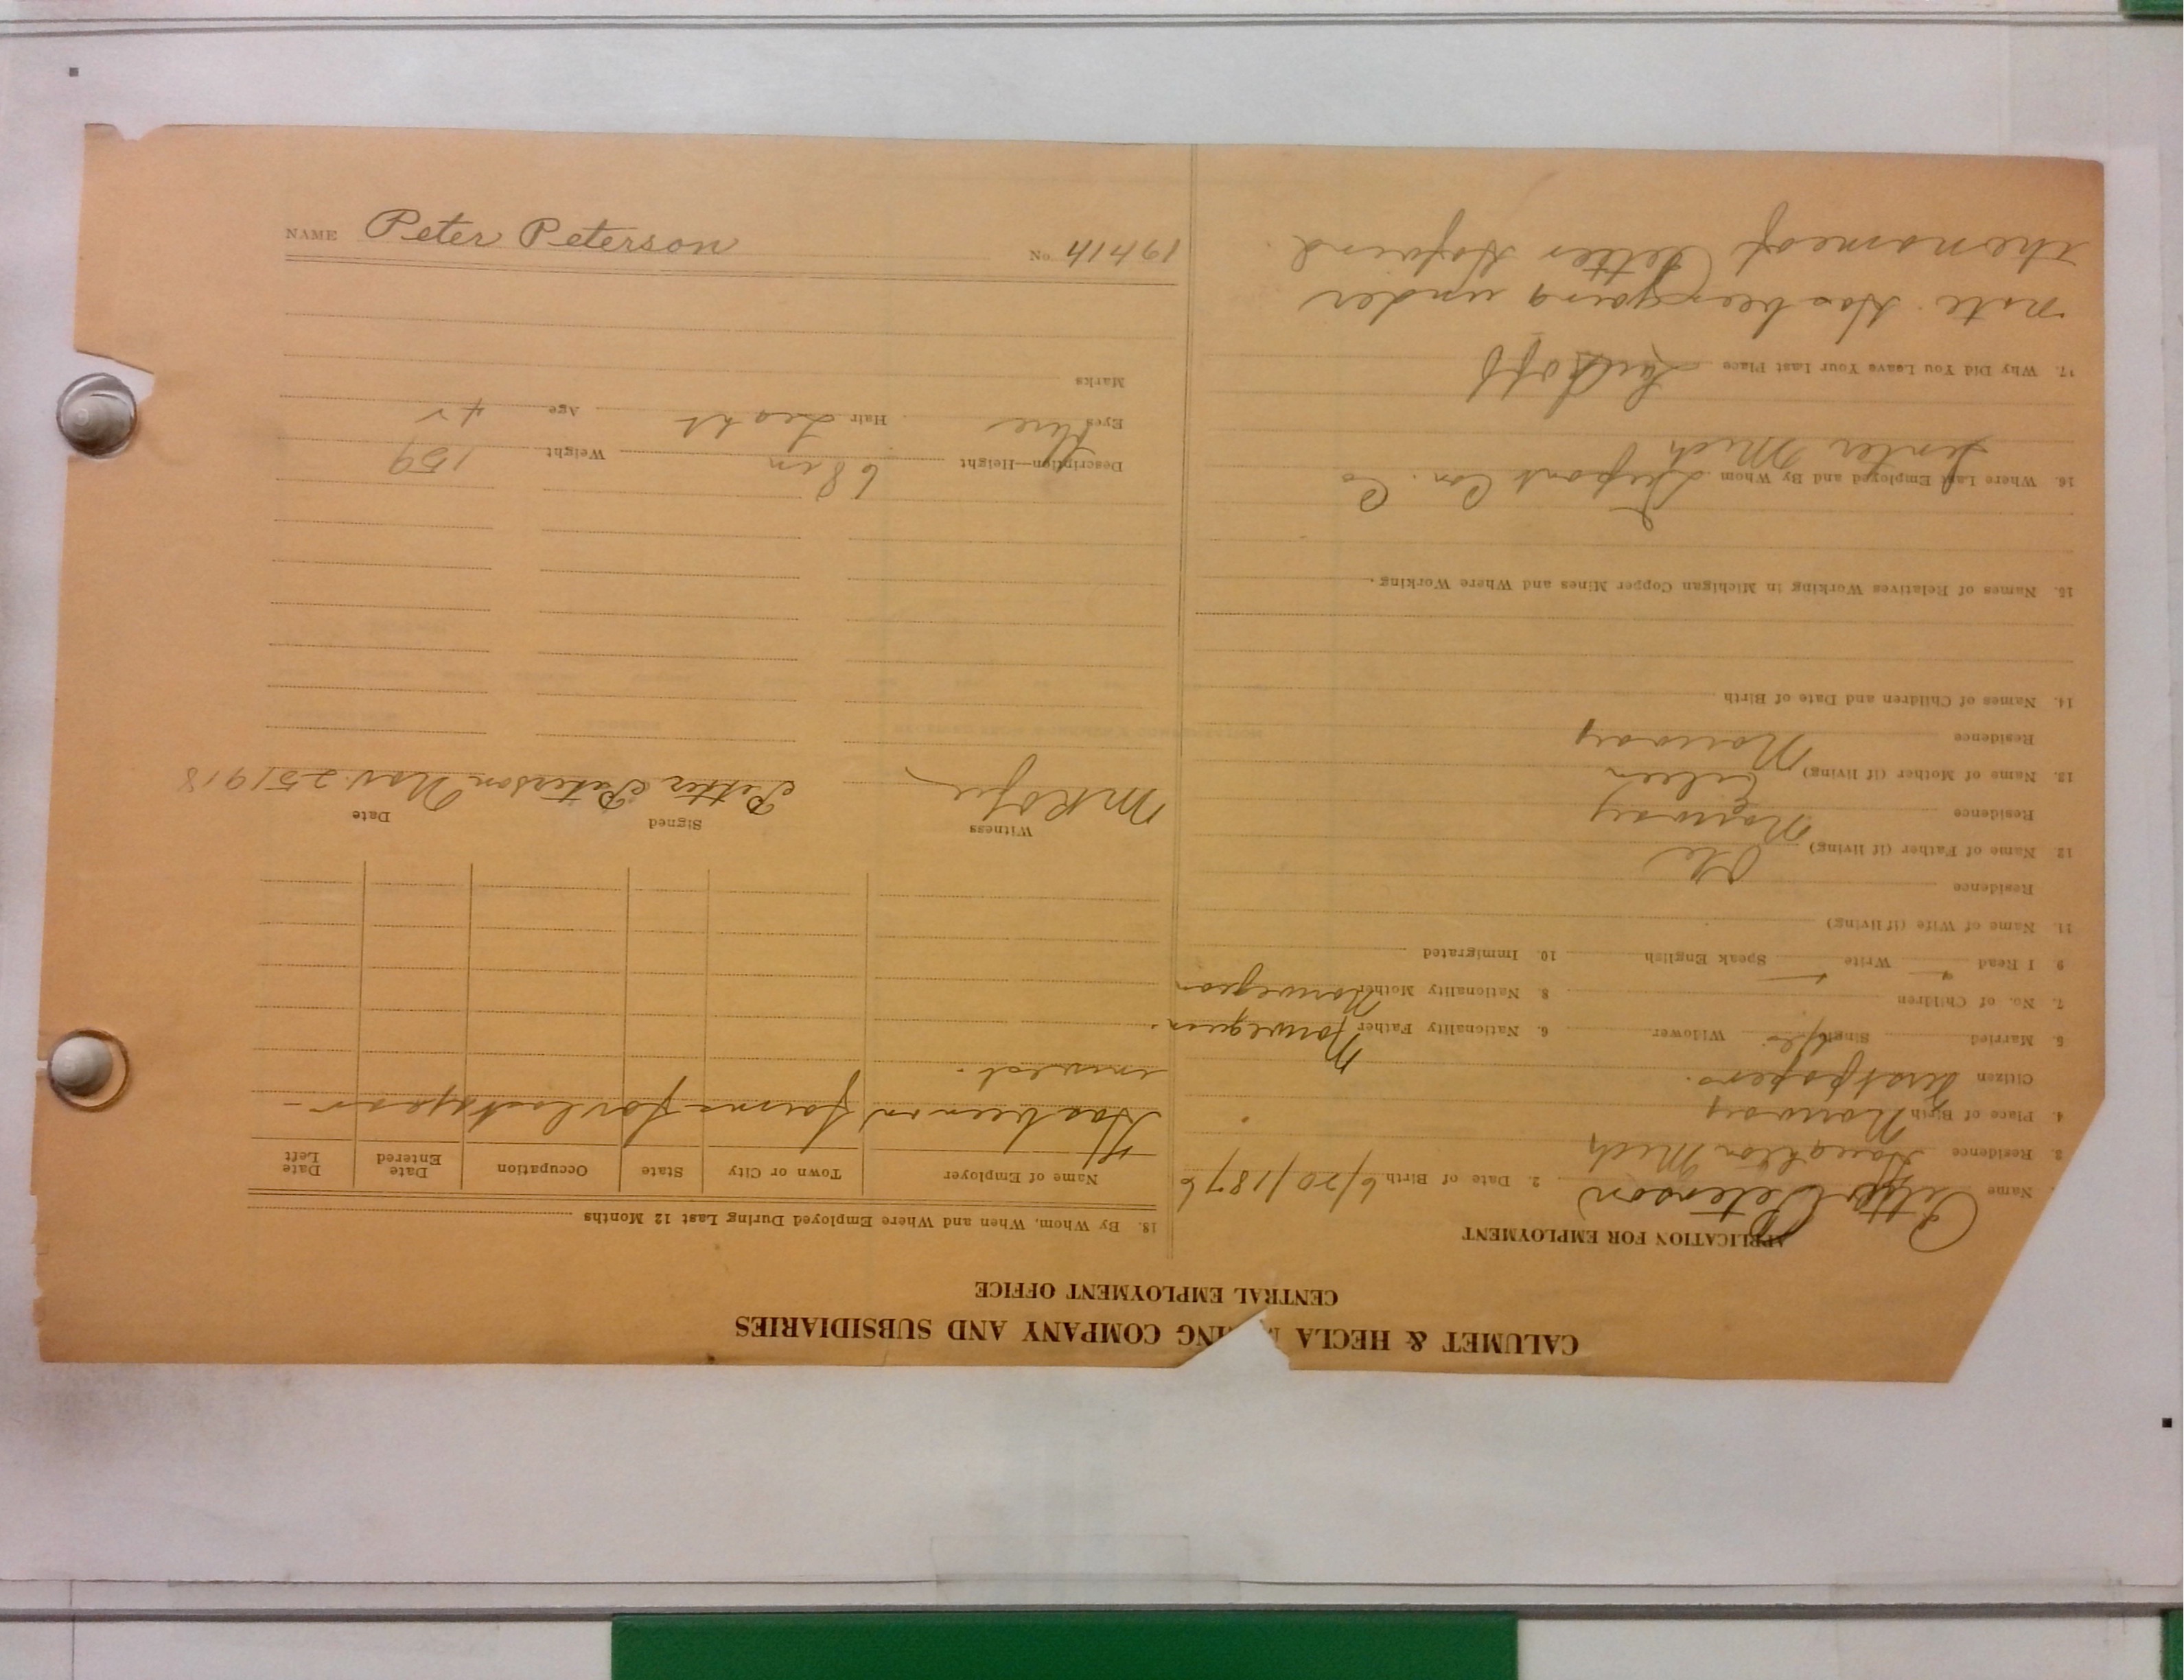 CALUMET & HECLA MINING COMPANY AND SUBSIDIARIES
CENTRAL EMPLOYMENT OFFICE
APPLICATION FOR EMPLOYMENT
Name Petter Peterson 2. Date of Birth 6/20/1876
3. Residence Houghton Mich
4. Place of Birth Norway
Citizen First papers.
5. Married Single yes Widower 6. Nationality Father Norwegian
7. No. of Children 8. Nationality Mother Norwegian
9 I Read Write Speak English 10. Immigrated
11. Name of Wife (if living)
Residence
12 Name of Father (if living) Ole
Residence Norway
13. Name of Mother (if living) Eileen
Residence Norway
14. Names of Children and Date of Birth
15. Names of Relatives Working in Michigan Copper Mines and Where Working
16. Where Last Employed and By Whom Dupont Con. Co
Senter Mich
17. Why Did You Leave Your Last Place Laid off
note. Has been going under
the name of Petter
18. By Whom, When and Where Employed During Last 12 Months
Name of Employer Town or City State Occupation Date Entered Date Left
Has been on farms for last year -
in west.
Witness Signed Date
Petter Peterson Nov. 25 1918
Description—Height 68 in Weight 159
Eyes Blue Hair Light Age 42
Marks
NAME Peter Peterson No. 41461